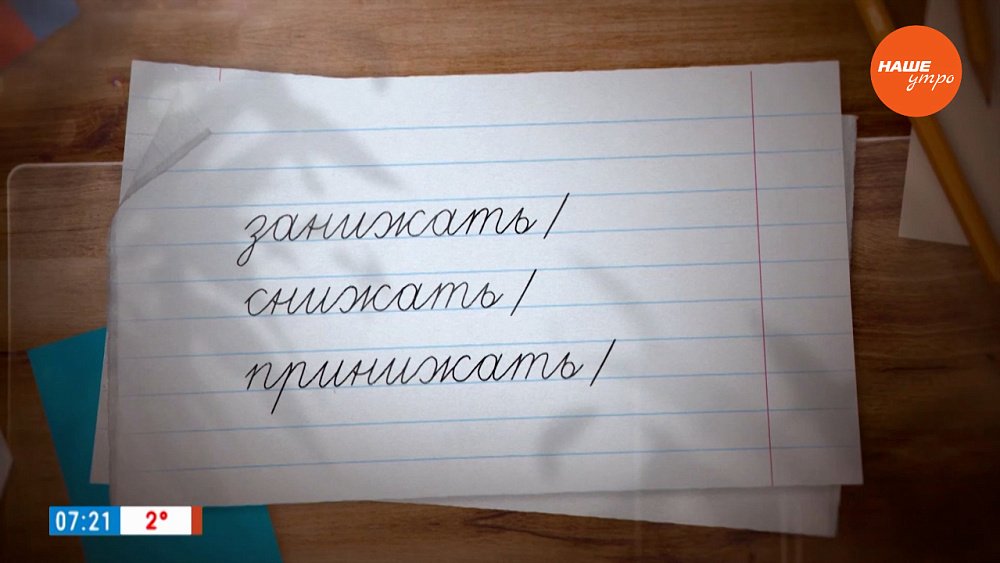 НАШЕ
утро
занижать/
снижать/
принижать/
07:21 2°